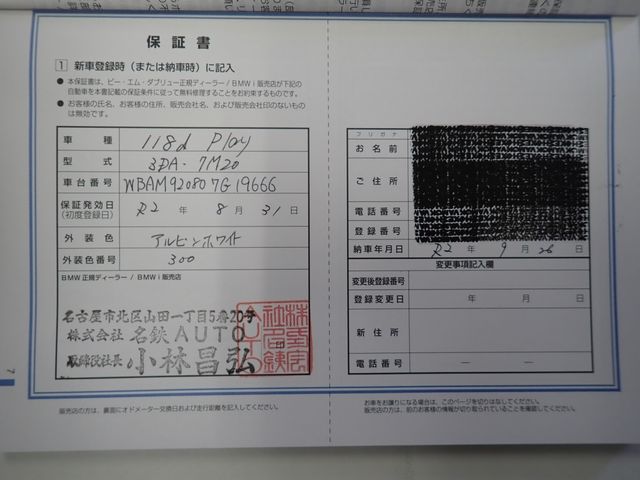 保証書
1 新車登録時（または納車時）に記入
● 本保証書は、ビー・エム・ダブリュー正規ディーラー/BMWi販売店が下記の
自動車を本書記載の保証条件に従って無料修理することをお約束するものです。
● お客様の氏名、お客様の住所、販売会社名、および販売会社印のないもの
は無効です。
車種 118d Play
型式 3DA-7M20
車台番号 WBAM920807G19666
保証発効日 R2年8月31日
(初度登録日)
外装色 アルピンホワイト
外装色番号 300
BMW正規ディーラー/BMWi販売店
名古屋市北区山田一丁目5番20号
株式会社 名鉄AUTO
取締役社長 小林昌弘
販売店の方は、裏面にオドメーター交換日および走行距離を記入してください。
7
フリガナ
お名前
ご住所
電話番号
登録番号
納車年月日 R2年9月26日
変更事項記入欄
変更後登録番号
登録変更日 年 月 日
新住所
電話番号 ― ―
お車をお譲りになる場合は、このページを切りはなしてください。
販売店の方は、前のお客様の情報が切り取られていることを確認してください。